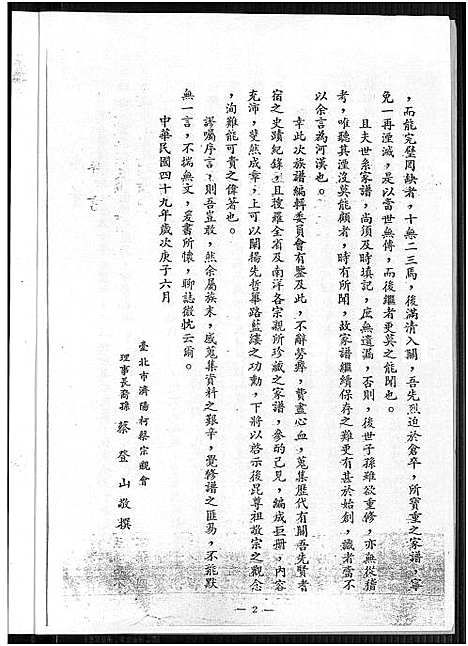 ，而能完璧罔缺者，十無二三焉，後滿清入關，吾先烈迫於倉卒，所寶重之家譜，寧
免一再湮滅，是以當世無傳，而後繼者更莫之能聞也。
且夫世系家譜，尚須及時填記，庶無遺漏，否則，後世子孫雖欲重修，亦無從稽
考，唯聽其湮沒莫能顧者，時有所聞，故家譜繼續保存之難更有甚於始創，識者當不
以余言為河漢也。
幸此次族譜編輯委員會有鑒及此，不辭勞瘁，費盡心血，蒐集歷代有關吾先賢耆
宿之史蹟紀錄，且搜羅全省及南洋各宗親所珍藏之家譜，參酌己見，編成巨册，內容
充沛，斐然成章，上可以闡揚先哲篳路藍縷之功勳，下將以啓示後昆尊祖敬宗之觀念
，洵難能可貴之偉著也。
謬囑序言，則吾豈敢，然余屬族末，感蒐集資料之艱辛，覺修譜之匪易，不能默
無一言，不揣無文，爰書所懷，聊誌微忱云爾。
中華民國四十九年歲次庚子六月
臺北市濟陽柯蔡宗親會
理事長裔孫 蔡登山敬撰
— 2 —